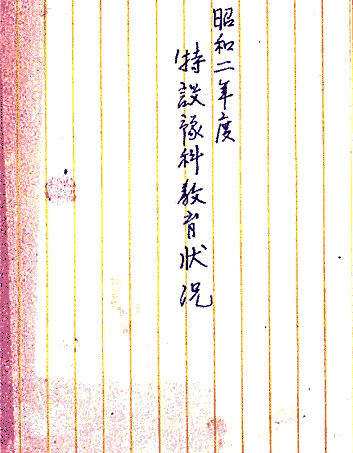 昭和二年度
特設豫科教育状况